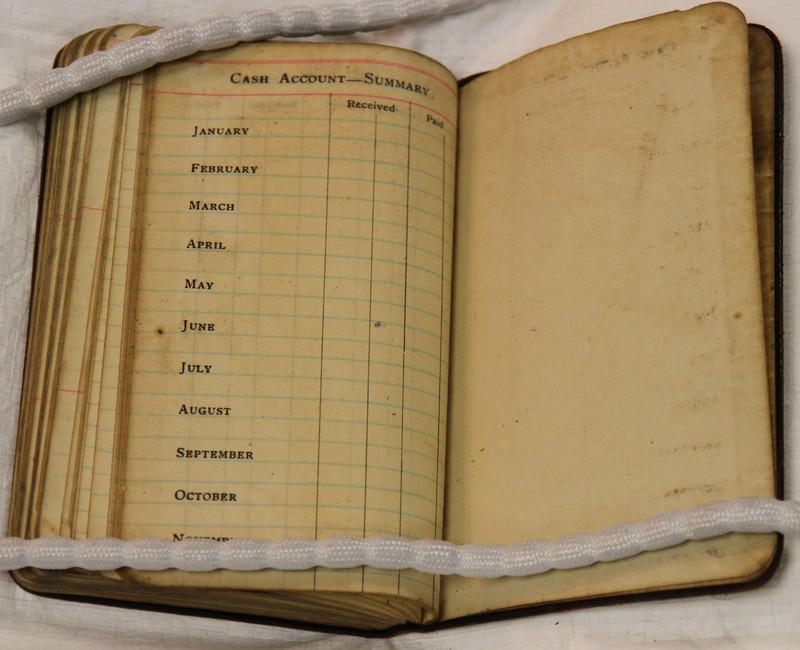 CASH ACCOUNT—SUMMARY.
Received Paid
JANUARY
FEBRUARY
MARCH
APRIL
MAY
JUNE
JULY
AUGUST
SEPTEMBER
OCTOBER
NOVEMBER